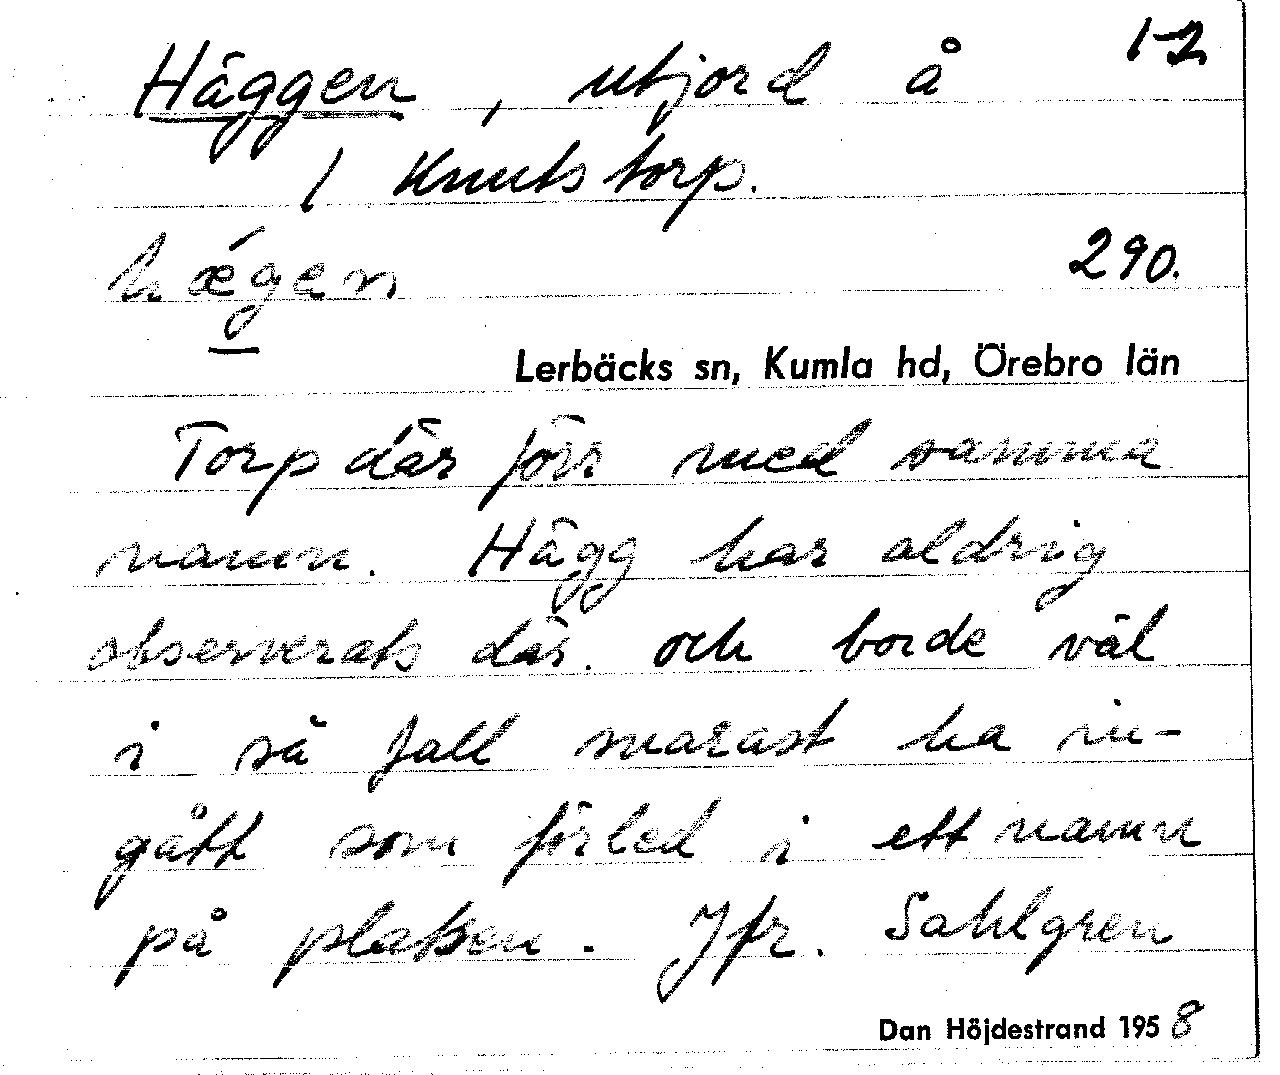 1-2
Häggen, utjord å
1 Knutstorp.
hǽgen
290.
Lerbäcks sn, Kumla hd, Örebro län
Torp där förr med samma
namn. Hägg har aldrig
observerats där och borde väl
i så fall snarast ha in-
gått som förled i ett namn
på platsen. Jfr. Sahlgren
Dan Höjdestrand 1958